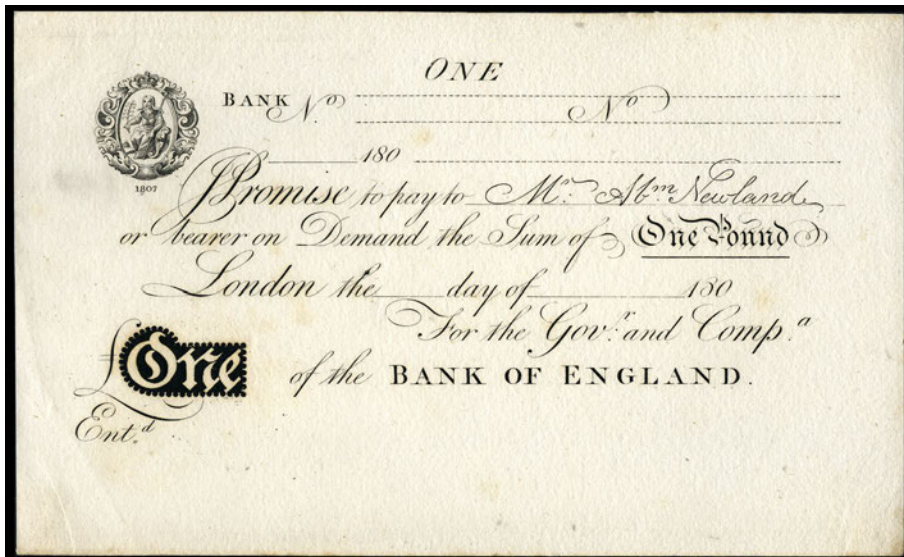 ONE
BANK No. No
180
1807
I Promise to pay to Mr. Abm Newland
or bearer on Demand the Sum of One Pound
London the day of 180
For the Govr. and Compa.
£One of the BANK OF ENGLAND.
Entd.